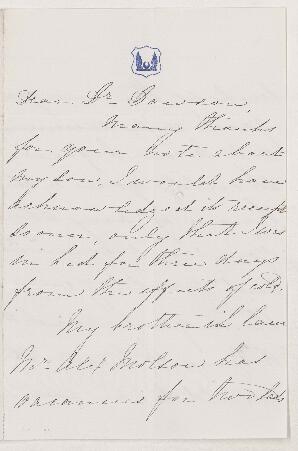 Dear Dr Dawson,
Many thanks
for your note about
my son, I would have
acknowledged its receipt
sooner, only that I was
in bed for three days
from the effects of cold.
My brother in law
Mr Alex Molson has
vacancies for two lads